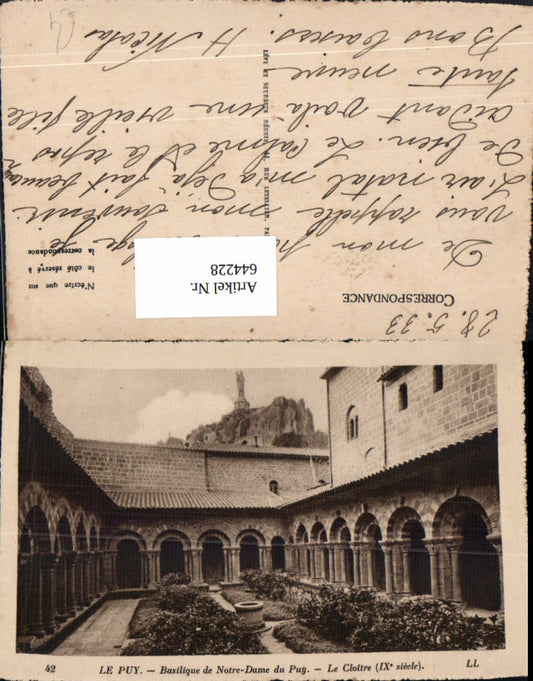 28.5.33
CORRESPONDANCE
N'écrire que sur
le côté réservé à
la correspondance
Artikel Nr.
644228
De mon je
vous rappelle mon souvenir
L'air natal m'a déjà fait beaucoup
De bien. Le calme et le repos
aidant voilà une vieille fille
toute neuve
Bons baisers. H Nicolas
£4
42 LE PUY. — Basilique de Notre-Dame du Puy. — Le Cloître (IXe siècle). LL